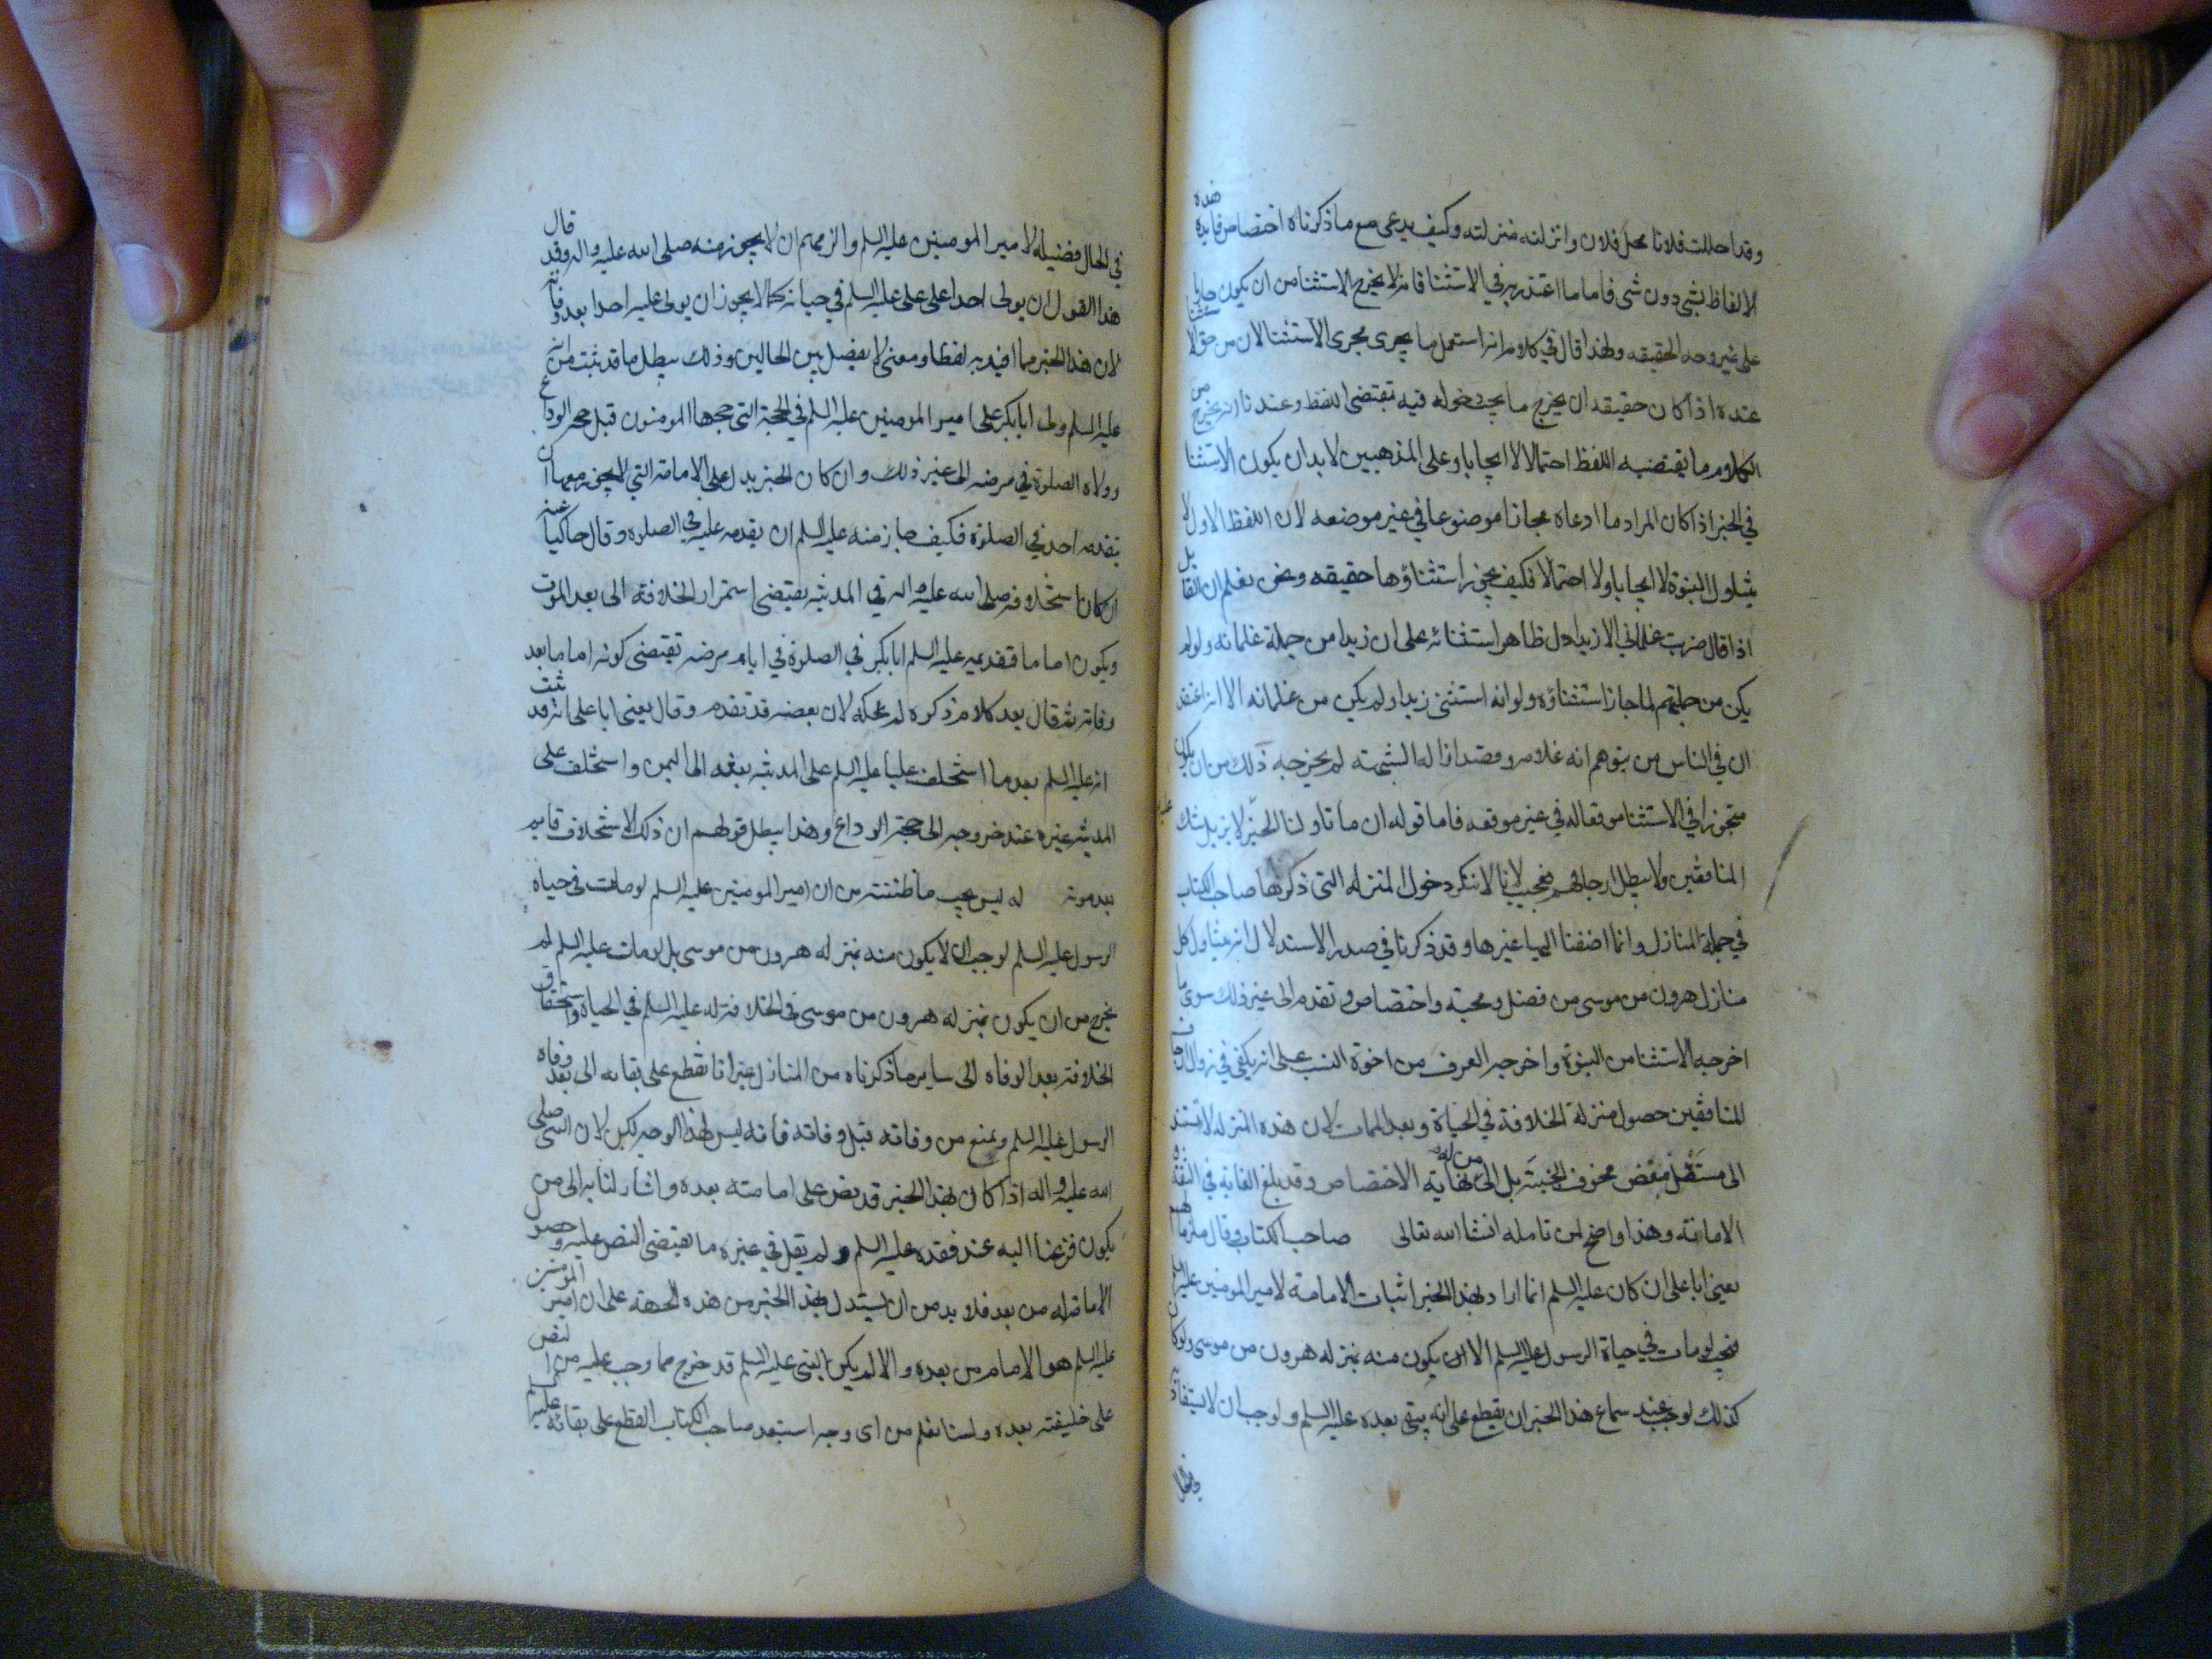 وقد احللت فلانا محل فلان وانزلته منزلته وكيف يدعى مع ما ذكرناه اختصاص فايدة هذه
الالفاظ بشى دون شى فاما ما اعتذر به في الاستثنا فانه لا يخرج الاستثنا من ان يكون جاريا
على غير وجه الحقيقه ولهذا قال في كلامه انه استعمل ما يجرى مجرى الاستثنا لان من حق الاستثنا
عنده اذا كان حقيقه ان يخرج ما يجب دخوله فيه بمقتضى اللفظ وعندنا انه يخرج من
الكلام ما يقتضيه اللفظ احتمالا لا ايجابا وعلى المذهبين لا بد ان يكون الاستثنا
في الخبر اذا كان المراد ما ادعاه مجازا موضوعا في غير موضعه لان اللفظ الاول لا
يتناول النبوة لا ايجابا ولا احتمالا فكيف يجوز استثناؤها حقيقه ونحن نعلم ان القايل
اذا قال ضربت غلماني الا زيدا دل ظاهر استثنائه على ان زيدا من جملة غلمانه ولو لم
يكن من جملتهم لما جاز استثناؤه ولو انه استثنى زيدا ولم يكن من غلمانه الا انه اعتقد
ان في الناس من يتوهم انه غلامه وقصد ازالة الشبهة لم يخرجه ذلك من ان يكون
متجوزا في الاستثنا موقعا له في غير موقعه فاما قوله ان ما تاولنا الخبر عليه لا يزيل شك
المنافقين ولا يبطل ارجافهم فعجيب لانا لا ننكر دخول المنزله التى ذكرها صاحب الكتاب
في جملة المنازل وانما اضفنا اليها غيرها وقد ذكرنا في صدر الاستدلال انه يتناول كل
منازل هرون من موسى من فضل ومحبة واختصاص وتقدم الى غير ذلك سوى ما
اخرجه الاستثنا من النبوة واخرجه العرف من اخوة النسب على انه يكفى في زوال ارجاف
المنافقين حصول منزلة الخلافة في الحياة وبعد الممات لان هذه المنزله لا تستند
الى مستثقل مبغض مخوف الخيبة بل الى من له نهاية الاختصاص وقد بلغ الغايه في الثقة
والامانة وهذا واضح لمن تامله انشا الله تعالى صاحب الكتاب وقال ملزما لهم
يعنى ابا على ان كان عليه السلم انما اراد بهذا الخبر اثبات الامامة لامير المومنين عليه السلم
فيجب لو مات في حياة الرسول عليه السلم الا ان يكون منه بمنزله هرون من موسى ولو كان
كذلك لوجب عند سماع هذا الخبر ان يقطع على انه يبقى بعده عليه السلم ولوجب ان لا يستفاد به
في الحال
في الحال فضيلة لامير المومنين عليه السلم والزمهم ان لا يجوز منه صلى الله عليه واله وقد قال
هذا القول ان يولى احدا على على عليه السلم في حياته كما لا يجوز ان يولى عليه احدا بعد وفاته
لان هذا الخبر مما افيد به لفظا ومعنى لا يفصل بين الحالين وذلك يبطل ما قد ثبت من انه
عليه السلم ولى ابا بكر على امير المومنين عليه السلم في الحجة التى حجها المومنون قبل حجة الوداع
وولاه الصلوة في مرضه الى غير ذلك وان كان الخبر يدل على الامامة التي لا يجوز معها ان
يتقدمه احد في الصلوة فكيف جاز منه عليه السلم ان يقدمه عليه في الصلوة وقال حاكيا عنه
ان كان استخلافه صلى الله عليه واله في المدينه يقتضى استمرار الخلافة الى بعد الموت
ويكون اماما فتقديمه عليه السلم ابا بكر في الصلوة في ايام مرضه تقتضى كونه اماما بعد
وفاته ثم قال بعد كلام ذكره لم نحكه لان بعضه قد تقدم وقال يعنى ابا على انه قد ثبت
انه عليه السلم بعد ما استخلف عليا عليه السلم على المدينه بعثه الى اليمن واستخلف على
المدينه غيره عند خروجه الى حجة الوداع وهذا يبطل قولهم ان ذلك الاستخلاف قايم
بعد موته له ليس يجب ما ظننته من ان امير المومنين عليه السلم لو مات في حياة
الرسول عليه السلم لوجب ان لا يكون منه بمنزله هرون من موسى بل لو مات عليه السلم لم
يخرج من ان يكون بمنزله هرون من موسى في الخلافة له عليه السلم في الحياة واستحقاق
الخلافة بعد الوفاه الى ساير ما ذكرناه من المنازل غير انا نقطع على بقائه الى بعد وفاه
الرسول عليه السلم ونمنع من وفاته قبل وفاته فانه ليس لهذا الوجه لكن لان النبى صلى
الله عليه واله اذا كان بهذا الخبر قد نص على امامته بعده واشار لنا به الى من
يكون فزعنا اليه عند فقده عليه السلم ولم يقل في غيره ما يقتضى النص عليه وحصول
الامامة له من بعد فلا بد من ان يستدل بهذا الخبر من هذه الجهة على ان امير المومنين
عليه السلم هو الامام من بعده والا لم يكن النبى عليه السلم قد خرج مما وجب عليه من النص
على خليفته بعده ولسنا نعلم من اى وجه استبعد صاحب الكتاب القطع على بقائه